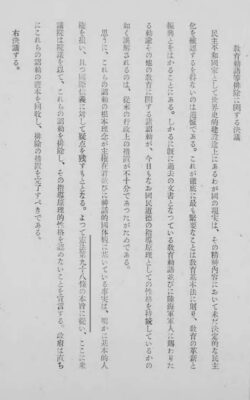 教育勅語等排除に関する決議
民主平和国家として世界史的建設途上にあるわが国の現実は、その精神内容において未だ決定的な民主
化を確認するを得ないのは遺憾である。これが徹底に最も緊要なことは教育基本法に則り、教育の革新と
振興とをはかることにある。しかるに既に過去の文書となつている教育勅語並びに陸海軍軍人に賜わりた
る勅諭その他の教育に関する諸詔勅が、今日もなお国民道徳の指導原理としての性格を持続しているかの
如く誤解されるのは、従来の行政上の措置が不十分であつたがためである。
思うに、これらの詔勅の根本理念が主権在君並びに神話的国体観に基いている事実は、明かに基本的人
権を損い、且つ国際信義に対して疑点を残すもととなる。よつて憲法第九十八條の本旨に従い、ここに衆
議院は院議を以て、これらの詔勅を排除し、その指導原理的性格を認めないことを宣言する。政府は直ち
にこれらの詔勅の謄本を回収し、排除の措置を完了すべきである。
右決議する。